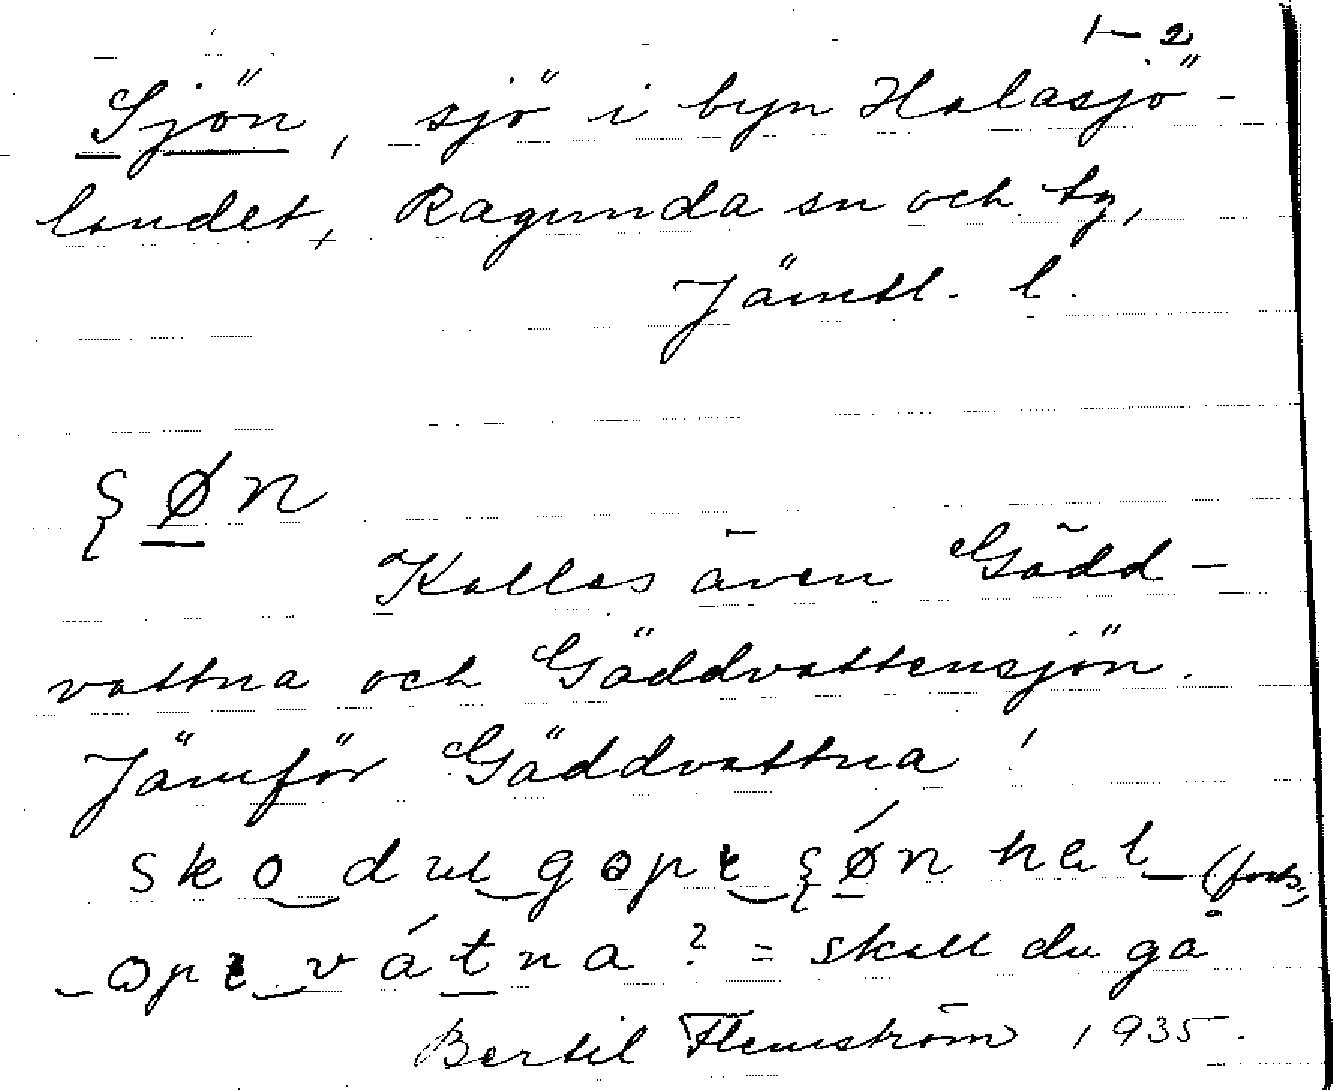 1–2
Sjön, sjö i byn Halasjö-
landet, Ragunda sn och tg,
Jämtl. l.
ʂøn
Kallas även Gädd-
vattna och Gäddvattensjön.
Jämför Gäddvattna!
sko du gopɩ ʂǿn hal (forts.)
opɩ vátna? = skall du gå
Bertil Flemström 1935.